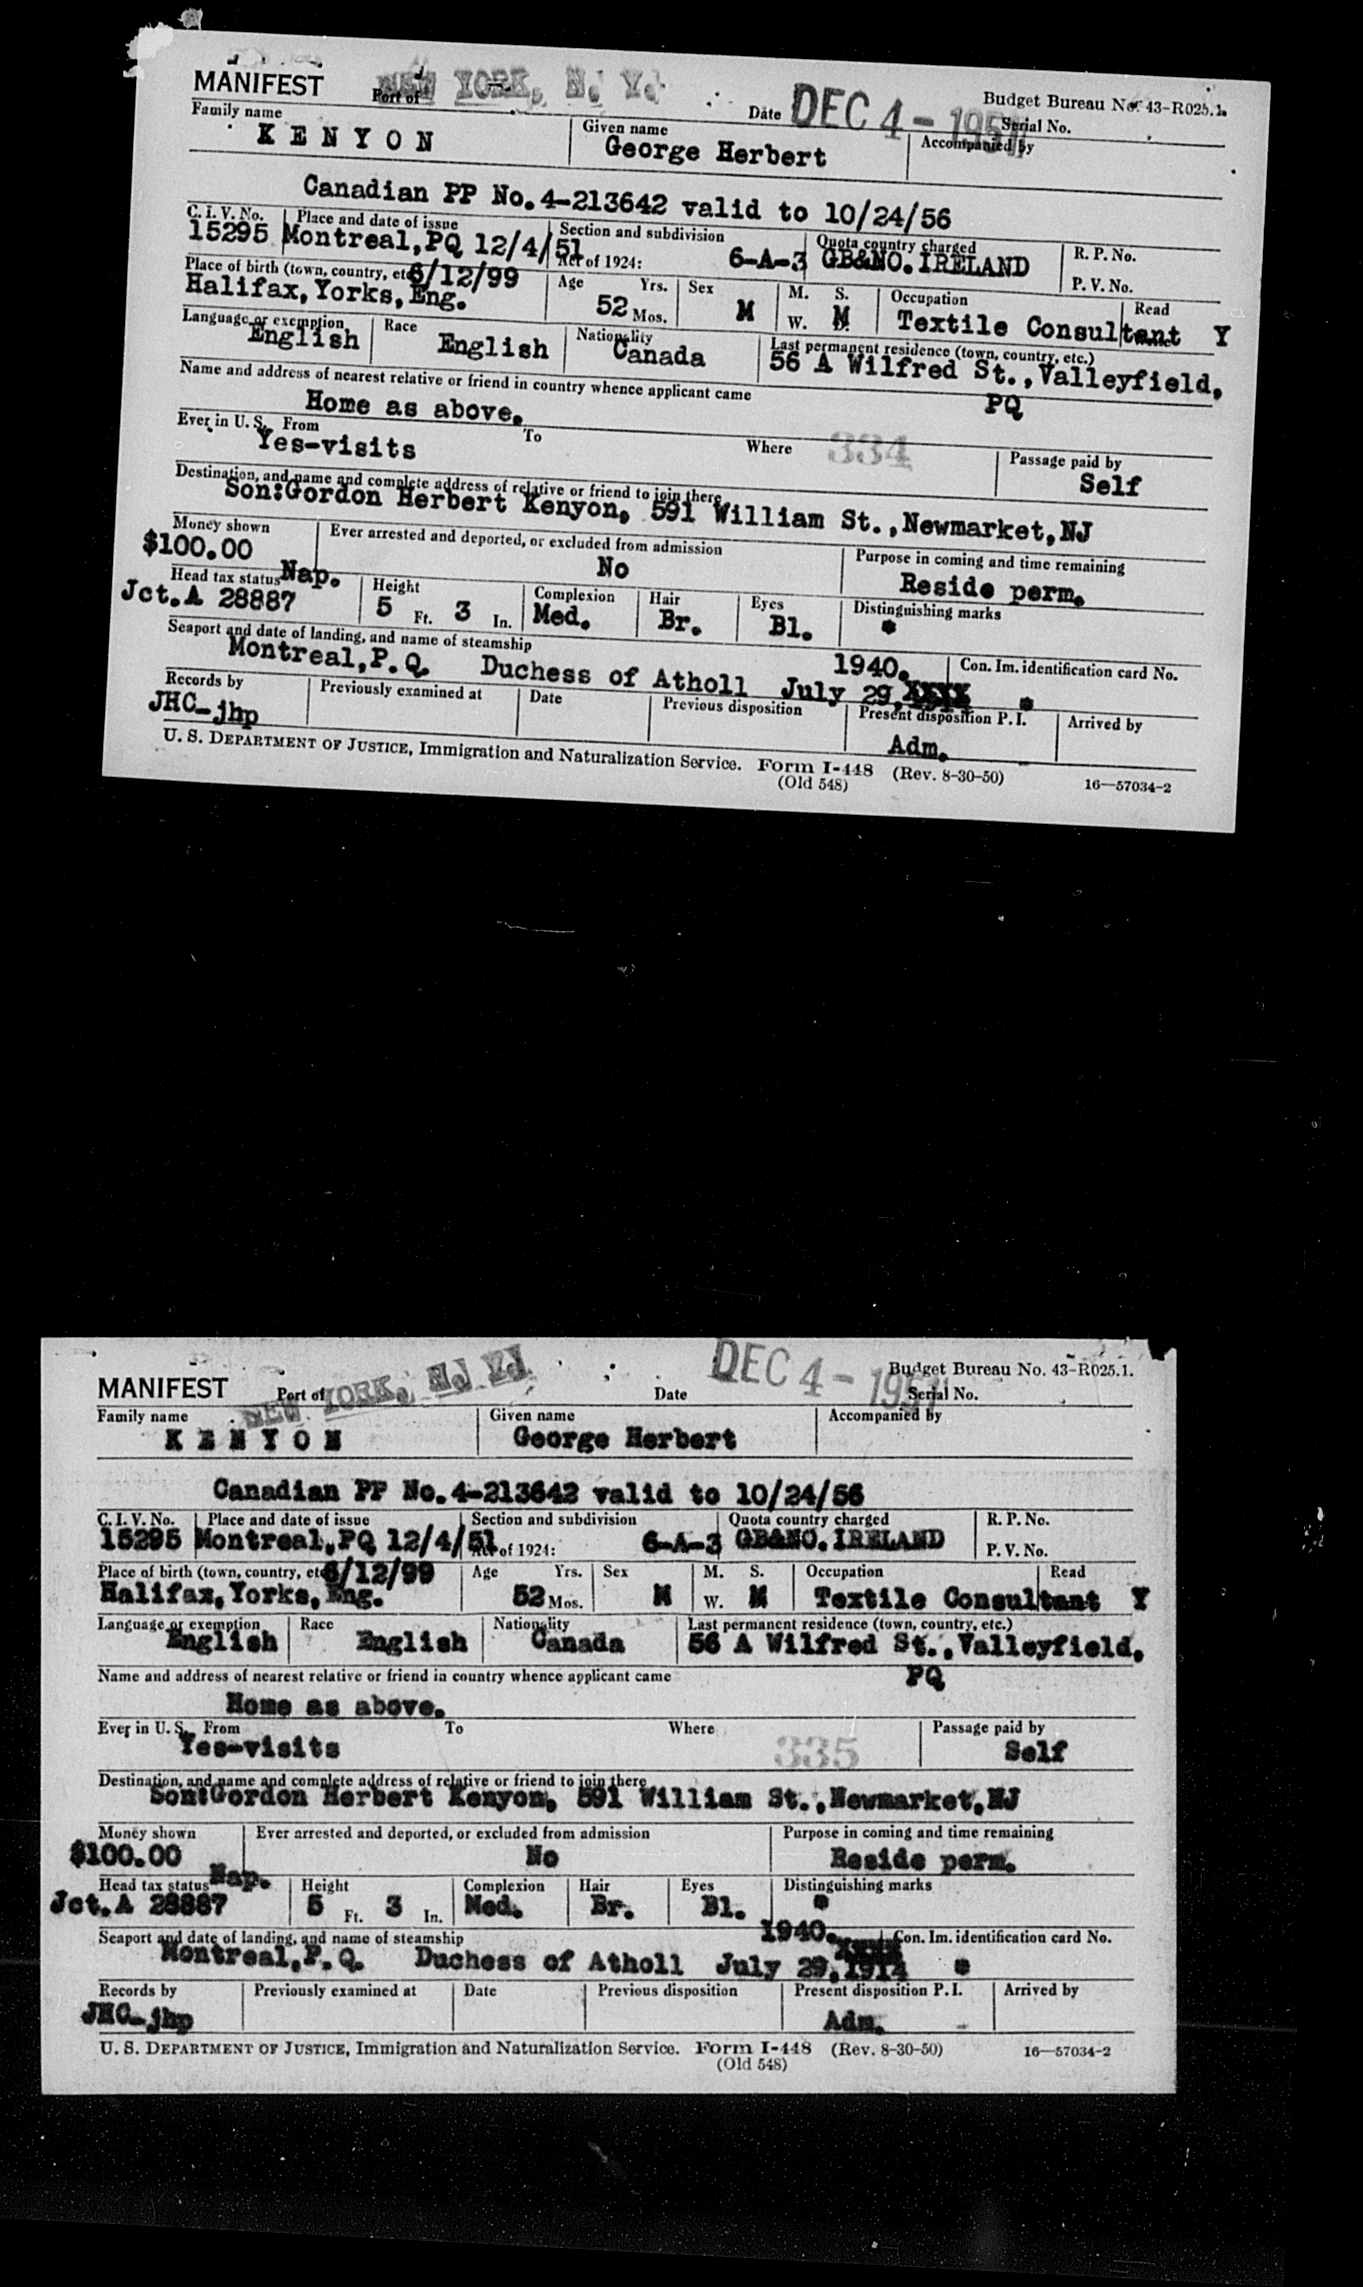 MANIFEST Port of NEW YORK, N. Y. Date DEC 4 - 1951 Budget Bureau No. 43-R025.1.
Serial No.
Family name Given name Accompanied by
K E N Y O N George Herbert
Canadian PP No.4-213642 valid to 10/24/56
C. I. V. No. Place and date of issue Section and subdivision Quota country charged R. P. No.
15295 Montreal,PQ 12/4/51 Act of 1924: 6-A-3 GB&NO.IRELAND P. V. No.
Place of birth (town, country, etc. 6/12/99 Age Yrs. Sex M. S. Occupation Read
Halifax,Yorks,Eng. 52 Mos. M W. M Textile Consultant Y
Language or exemption Race Nationality Last permanent residence (town, country, etc.)
English English Canada 56 A Wilfred St.,Valleyfield,
Name and address of nearest relative or friend in country whence applicant came PQ
Home as above.
Ever in U. S. From To Where Passage paid by
Yes-visits 334 Self
Destination, and name and complete address of relative or friend to join there
Son:Gordon Herbert Kenyon, 591 William St.,Newmarket,NJ
Money shown Ever arrested and deported, or excluded from admission Purpose in coming and time remaining
$100.00 No Reside perm.
Head tax status Nap. Height Complexion Hair Eyes Distinguishing marks
Jct.A 28887 5 Ft. 3 In. Med. Br. Bl. *
Seaport and date of landing, and name of steamship 1940. Con. Im. identification card No.
Montreal,P.Q. Duchess of Atholl July 29, XXXX *
Records by Previously examined at Date Previous disposition Present disposition P. I. Arrived by
JHC-jhp Adm.
U. S. DEPARTMENT OF JUSTICE, Immigration and Naturalization Service. Form I-448 (Rev. 8-30-50) 16—57034-2
(Old 548)
MANIFEST Port of NEW YORK, N. Y. Date DEC 4 - 1951 Budget Bureau No. 43-R025.1.
Serial No.
Family name Given name Accompanied by
K E N Y O N George Herbert
Canadian PP No.4-213642 valid to 10/24/56
C. I. V. No. Place and date of issue Section and subdivision Quota country charged R. P. No.
15295 Montreal,PQ 12/4/51 Act of 1924: 6-A-3 GB&NO.IRELAND P. V. No.
Place of birth (town, country, etc. 6/12/99 Age Yrs. Sex M. S. Occupation Read
Halifax,Yorks,Eng. 52 Mos. M W. M Textile Consultant Y
Language or exemption Race Nationality Last permanent residence (town, country, etc.)
English English Canada 56 A Wilfred St.,Valleyfield,
Name and address of nearest relative or friend in country whence applicant came PQ
Home as above.
Ever in U. S. From To Where Passage paid by
Yes-visits 335 Self
Destination, and name and complete address of relative or friend to join there
Son:Gordon Herbert Kenyon, 591 William St.,Newmarket,NJ
Money shown Ever arrested and deported, or excluded from admission Purpose in coming and time remaining
$100.00 No Reside perm.
Head tax status Nap. Height Complexion Hair Eyes Distinguishing marks
Jct.A 28887 5 Ft. 3 In. Med. Br. Bl. *
Seaport and date of landing, and name of steamship 1940. XXXX Con. Im. identification card No.
Montreal,P.Q. Duchess of Atholl July 29,1914 *
Records by Previously examined at Date Previous disposition Present disposition P. I. Arrived by
JHC-jhp Adm.
U. S. DEPARTMENT OF JUSTICE, Immigration and Naturalization Service. Form I-448 (Rev. 8-30-50) 16—57034-2
(Old 548)